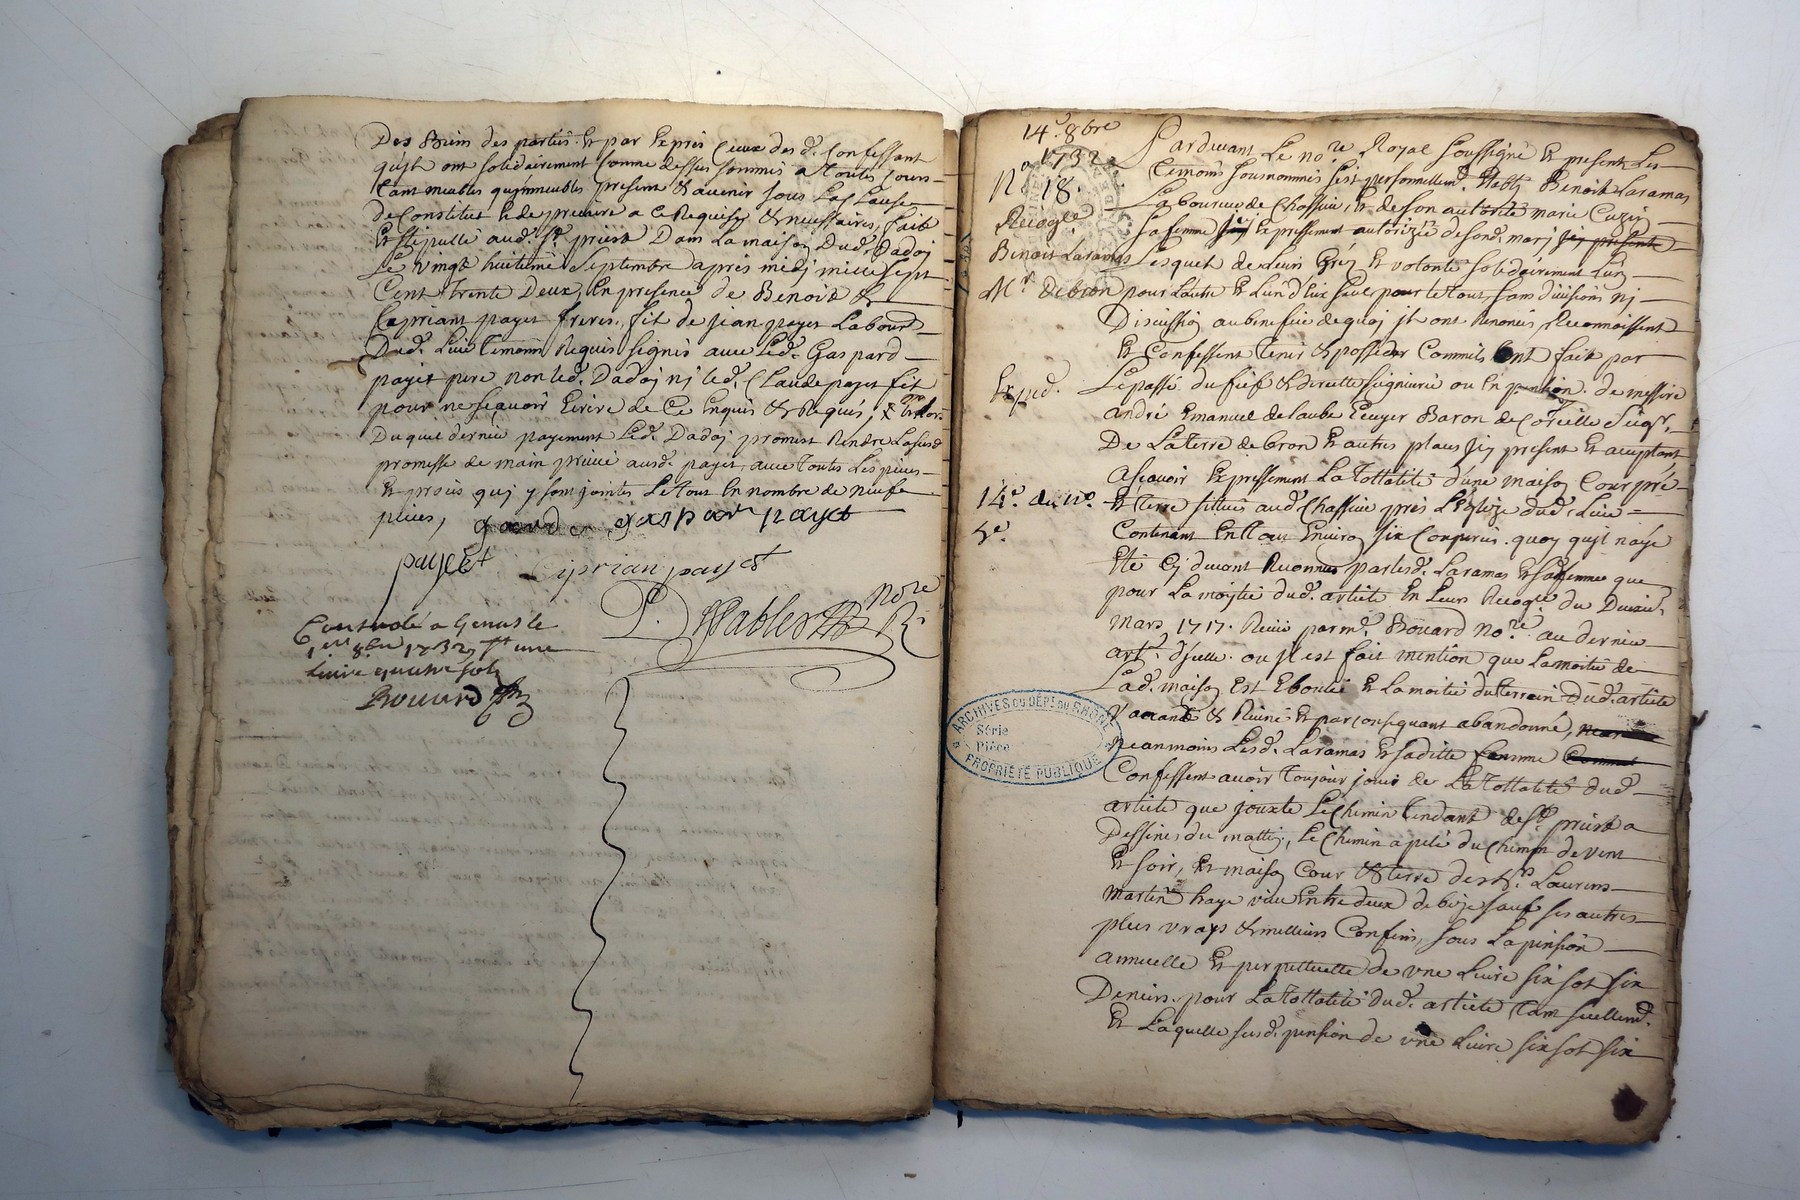 Des Biens des parties. Et par Exprés Ceux desd. Confessant
quils ont solidairement Comme dessus sommis a toutes Cours
tant meubles qu'immeubles present & avenir sous Las Clause
de Constitut & de precaire a Ce Requises & necessaires, fait
Et stipullé aud. St. priest Dans La maison Dud. Dadoj
Le vingt huitieme Septembre après midj mille Sept
Cent trente Deux, En presence de Benoist &
Cypriant payet freres, fils de jean payet Labour
Dud. Lieu temoins Requis signés avec Led. Gaspard
payet pere non Led. Dadoj nj led. Claude payet fils
pour ne sçavoir Ecrire de Ce Enquis & Requis,
Duquel dernier payement Led. Dadoj promest Rendre La susd
promesse de main privée ausd. payet, avec toutes Les pieces
Et procès quj y sont jointes Le tout En nombre de neuf
pieces, gaspar payet
payet Ciprian payet
nore
R.
Controlé a Genas le
1er 8bre 1732, une
Livre quatre sols
Bouard
14e. 8bre
1732
No. 18.
Recogce
Benoit Laramas
Mr. De bron
Exped.
14e. du no.
5e.
Pardevant Le nore Royal soussigné Et present Les
temoins sousnommés s'est personnellemt. Estably Benoist Laramas
Laboureur de Chassieu, & de son autorité marie Cuzin
sa femme Expressement autorizée de sond. marj
Lesquels de leurs Grés Et volonté solidairement L'un
pour L'autre Et L'un d'Eux seul pour le tout sans divisions nj
Discussion au benefice de quoj jls ont Renoncés, Reconnoissent
Et Confessent tenir & posseder Comme ils ont fait par
Le passé du fief & directe seigneurie ou En pention. de messire
andré Emanuel de laube Ecuyer Baron de Corcelle Seigr.
De La terre de bron Et autres places jcy present Et acceptant
Asçavoir Expressement La tottalité d'une maison Cour pré
Et terre sittués aud. Chassieu près L'Eglize dud. Lieu
Contenant En tout Environ six Couperies. quoy qu'jl n'aÿe
Eté Cj devant Reconnus par lesd. Laramas Et sa femme que
pour La mojtie dud. article En Leurs Recogce du Deuxie.
mars 1717. Receu par me. Boüard Nore. au dernier
artle. d'jcelle. ou jl est fait mention que La moitié de
Lad. maison Est Eboulée Et la moitié du terrain Dud. article
vacante & Ruiné Et par Consequant abandonné,
neanmoins Lesd. Laramas Et sa ditte femme
Confessent avoir toujour jouis de La tottalité dud.
article que jouxte Le Chemin tendant de St. priest a
Dessines du matin, Le Chemin apelé du Chemin de vent
Et soir, Et maison Cour & terre de Laurens
Martin haye vive Entre deux de bize sauf ses autres
plus vrays & meilleurs Confins, sous La pension
annuelle Et perpettuelle de une Livre six sol six
Deniers. pour La tottalité dud. article tant seullemt.
Et Laquelle susd. pension de une Livre six sol six
ARCHIVES DU DÉPt DU RHÔNE
Série
Pièce
PROPRIÉTÉ PUBLIQUE